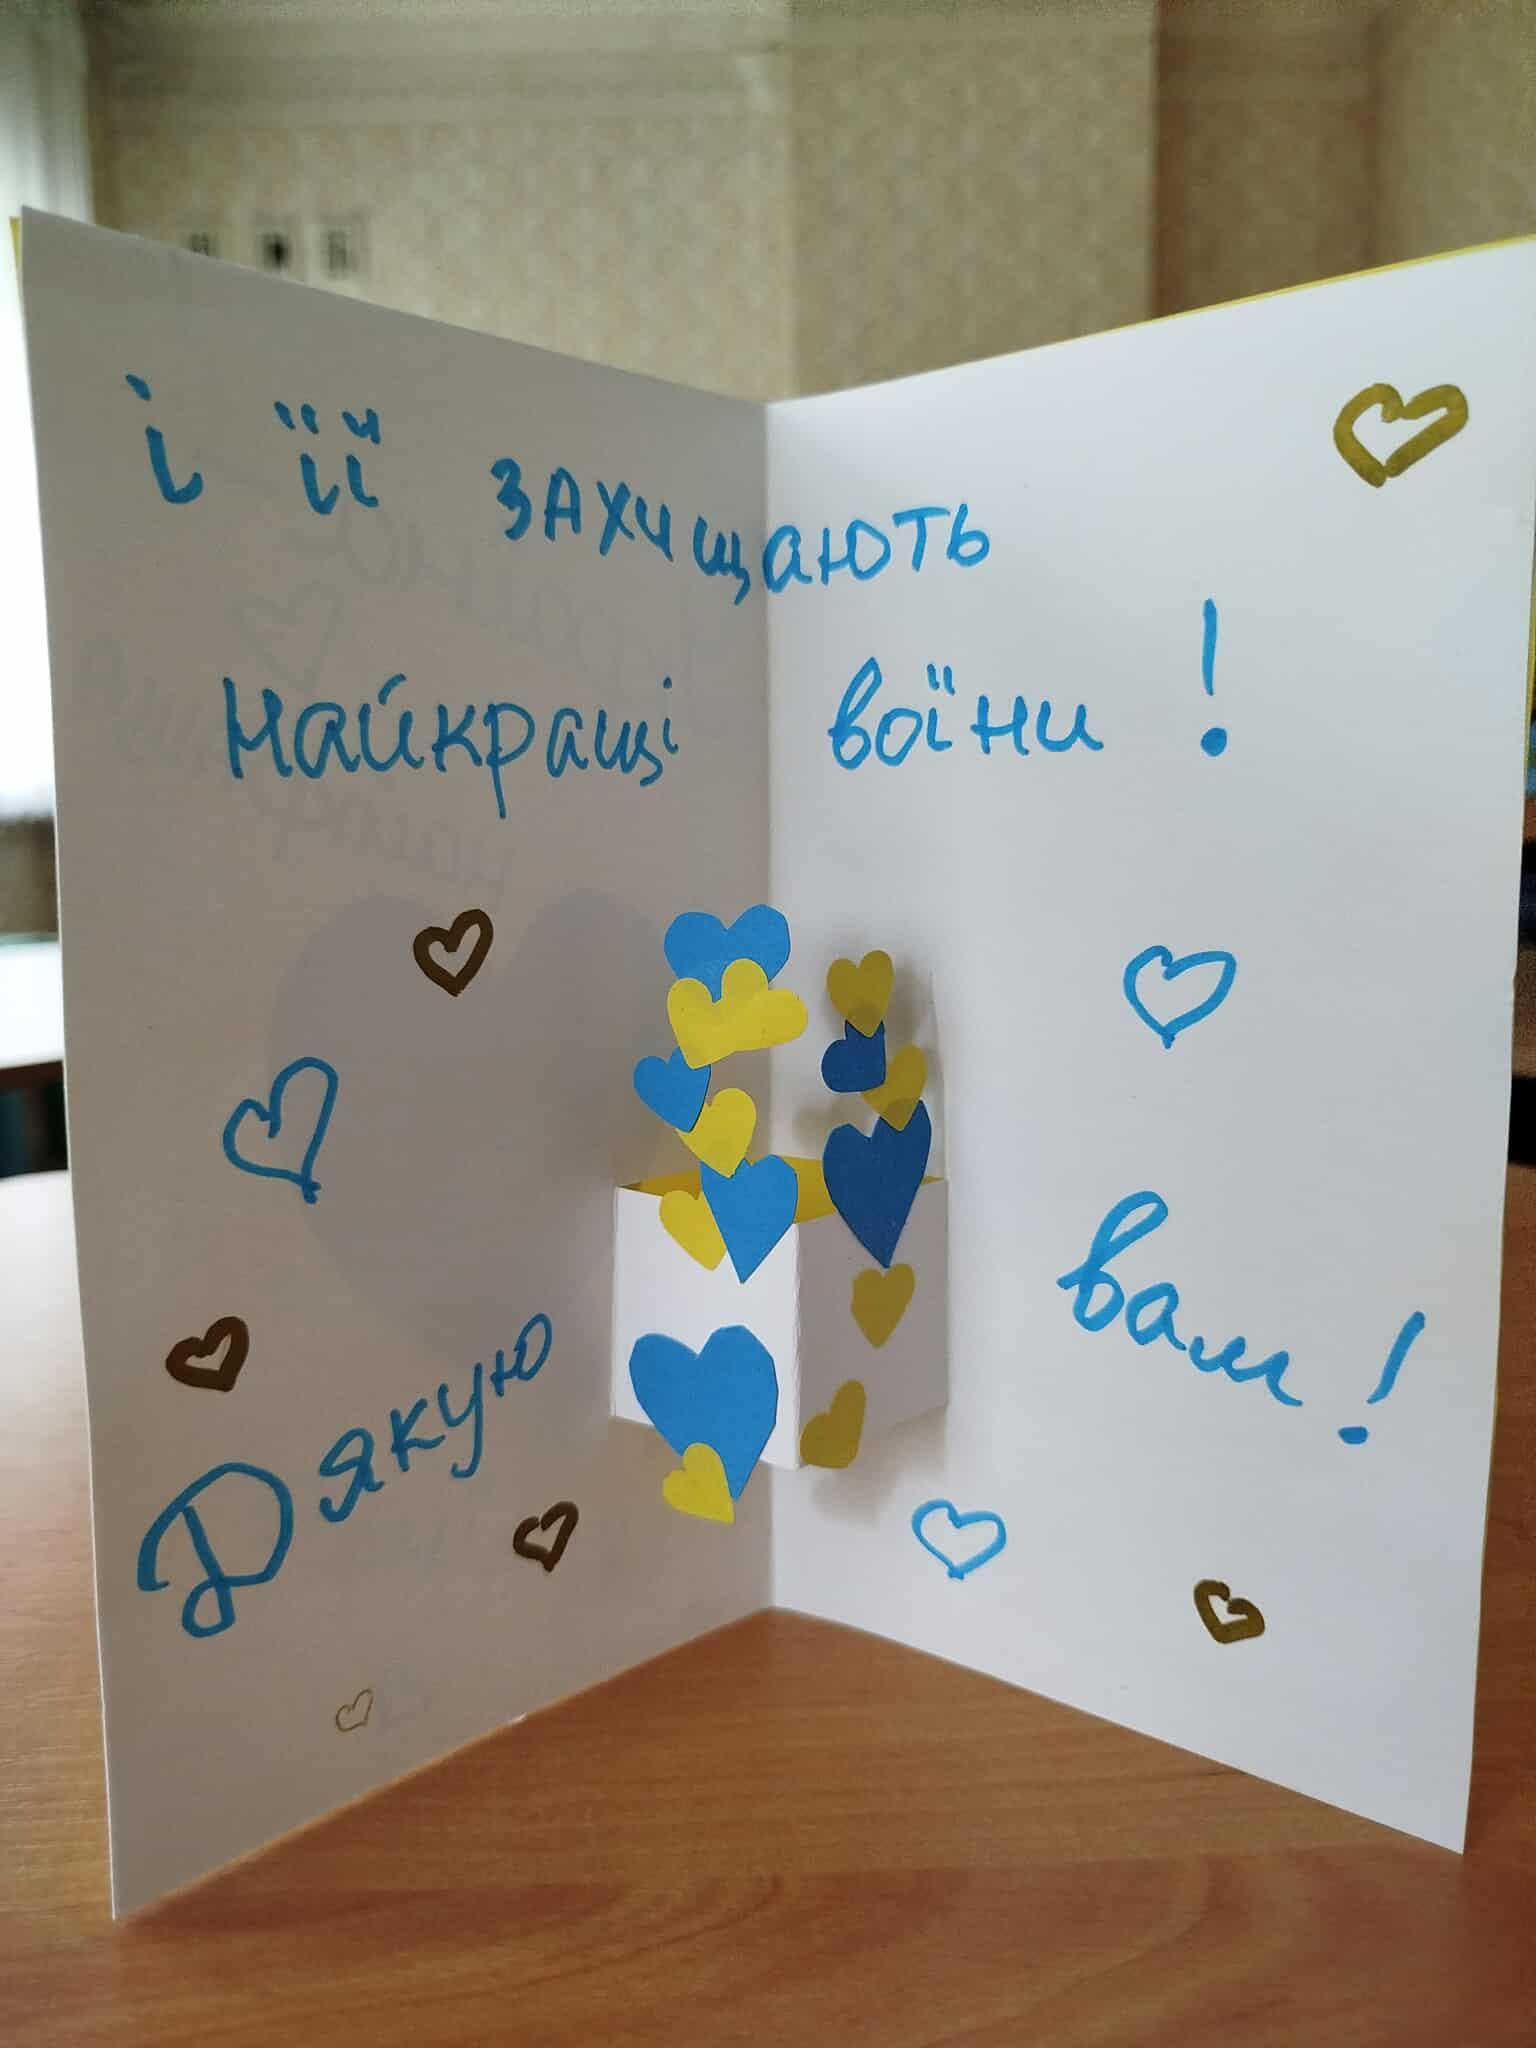 і її захищають
найкращі воїни!
Дякую вам!